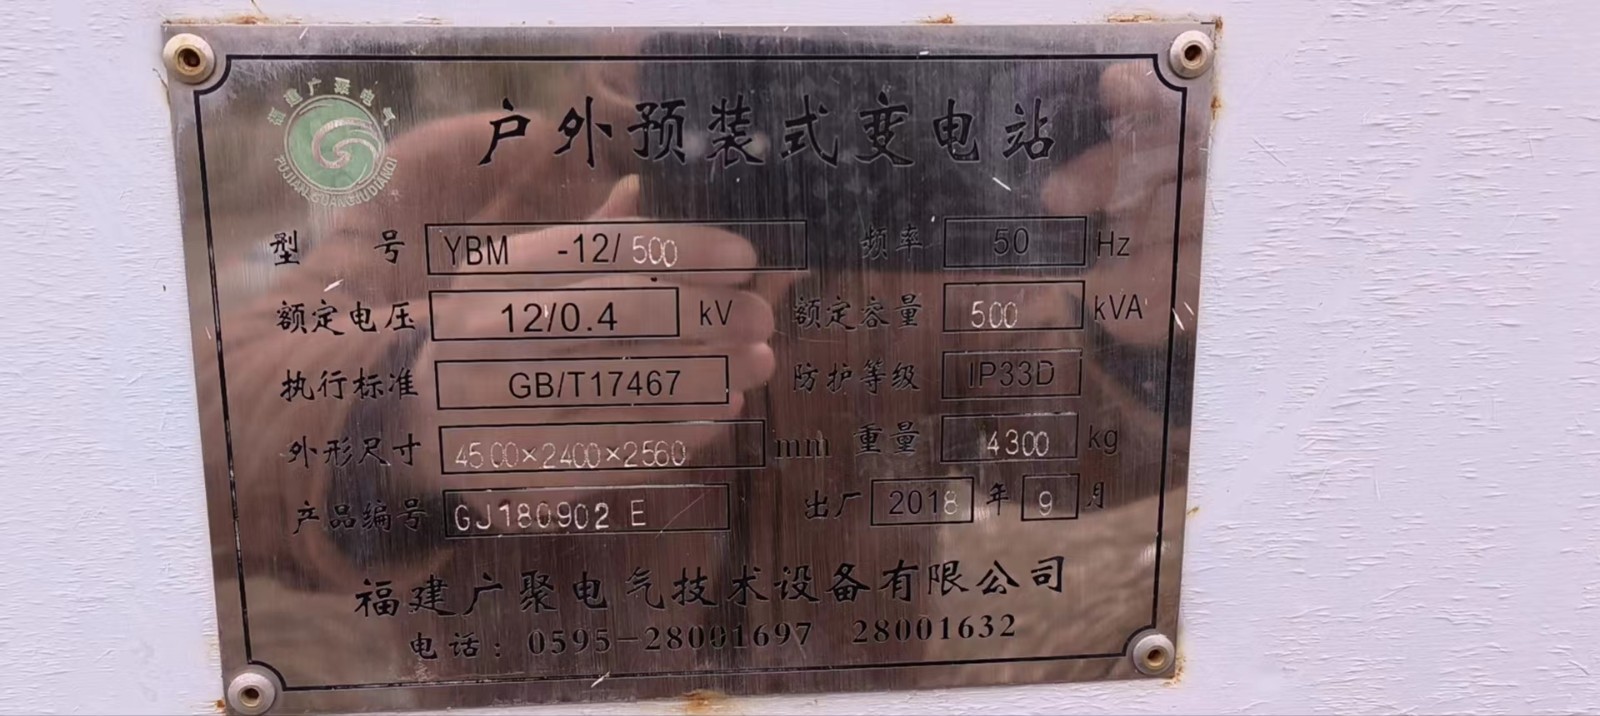 福建广聚电气
FUJIANGUANGJUDIANQI
户外预装式变电站
型 号 YBM -12/500 频率 50 Hz
额定电压 12/0.4 kV 额定容量 500 kVA
执行标准 GB/T17467 防护等级 IP33D
外形尺寸 4500×2400×2560 mm 重量 4300 kg
产品编号 GJ180902 E 出厂 2018 年 9 月
福建广聚电气技术设备有限公司
电话: 0595-28001697 28001632